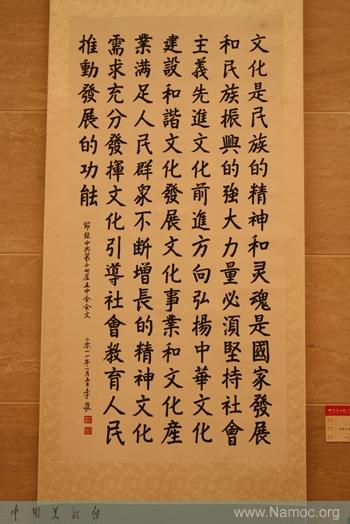 文化是民族的精神和灵魂是國家發展
和民族振興的強大力量必須堅持社會
主義先進文化前進方向弘揚中華文化
建設和諧文化發展文化事業和文化産
業满足人民群眾不断增長的精神文化
需求充分發揮文化引導社會教育人民
推動發展的功能
節錄中共第十七届五中全会文
二零一一年一月五日李
中国美术馆
www.Namoc.org